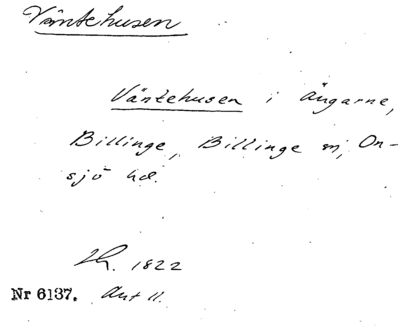 Väntehusen
Väntehusen i ängarne,
Billinge, Billinge sn, On-
sjö hd.
1822
Nr 6137. Ant 11.